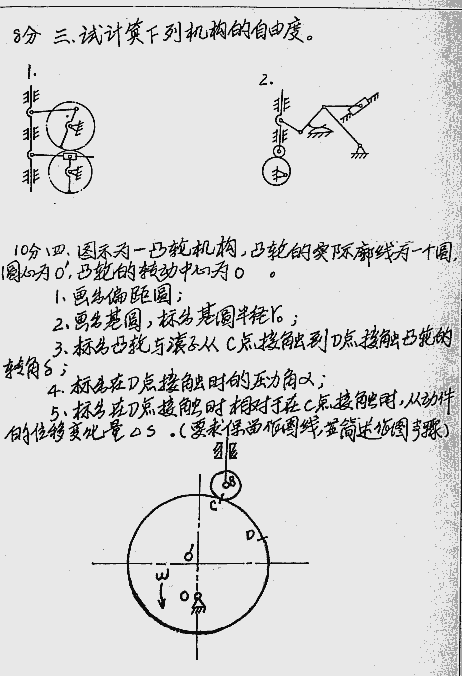 8分 三.试计算下列机构的自由度。
1.
2.
10分四.图示为一凸轮机构,凸轮的实际廓线为一个圆,
圆心为O′,凸轮的转动中心为O。
1.画出偏距圆;
2.画出基圆,标出基圆半径r₀;
3.标出凸轮与滚子从C点接触到D点接触凸轮的
转角δ;
4.标出在D点接触时的压力角α;
5.标出在D点接触时相对于在C点接触时,从动件
的位移变化量△S.(要求保留作图线,并简述作图步骤)
B
C
D
O′
ω
O